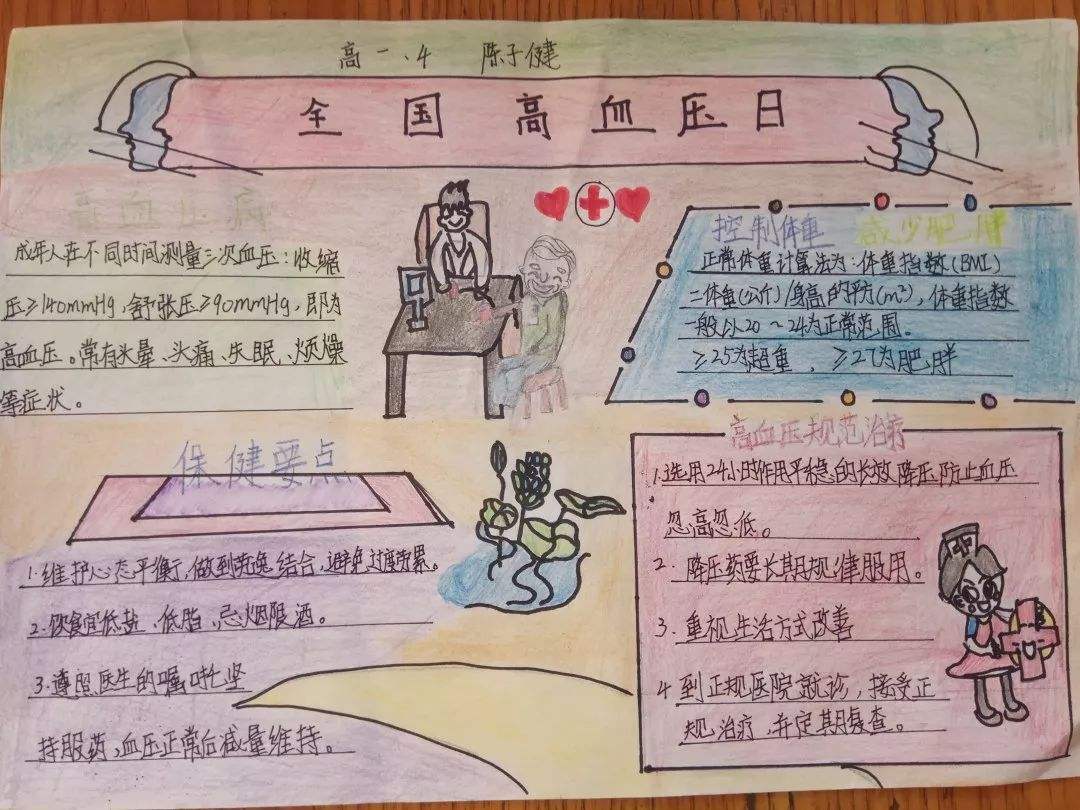 高一.4 陈子健
全国高血压日
高血压病
成年人在不同时间测量三次血压:收缩
压≥140mmHg,舒张压≥90mmHg,即为
高血压。常有头晕、头痛、失眠、烦燥
等症状。
控制体重 减少肥胖
正常体重计算法为:体重指数(BMI)
=体重(公斤)/身高的平方(m²),体重指数
一般以20~24为正常范围。
≥25为超重,≥27为肥胖
保健要点
1.维护心态平衡,做到劳逸结合,避免过度劳累。
2.饮食宜低盐、低脂,忌烟限酒。
3.遵照医生的嘱咐坚
持服药,血压正常后减量维持。
高血压规范治疗
1.选用24小时作用平稳的长效降压防止血压
忽高忽低。
2.降压药要长期规律服用。
3.重视生活方式改善
4到正规医院就诊,接受正
规治疗,并定期复查。